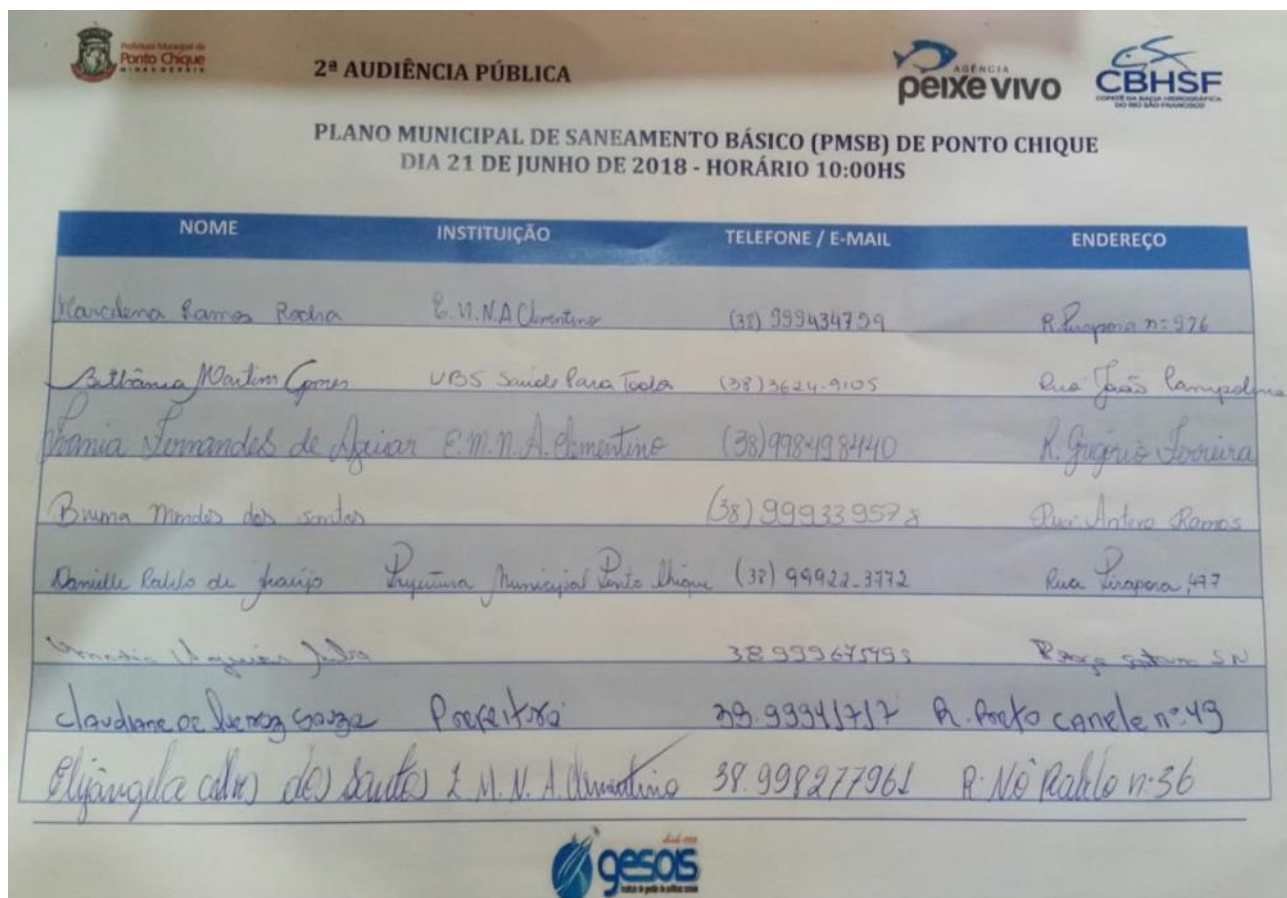 Prefeitura Municipal de
Ponto Chique
MINAS GERAIS
2ª AUDIÊNCIA PÚBLICA
AGÊNCIA
peixe vivo
CBHSF
COMITÊ DA BACIA HIDROGRÁFICA
DO RIO SÃO FRANCISCO
PLANO MUNICIPAL DE SANEAMENTO BÁSICO (PMSB) DE PONTO CHIQUE
DIA 21 DE JUNHO DE 2018 - HORÁRIO 10:00HS
NOME INSTITUIÇÃO TELEFONE / E-MAIL ENDEREÇO
Ramos Rocha E.M.N.A Clementino (38) 999434759 R. Pirapora nº 976
Bethânia Martins Gomes UBS Saúde Para Todos (38)3624-9105 Rua João
Fernandes de Aguiar E.M.N.A. Clementino (38)998498440 R. Ferreira
Bruna Mendes dos Santos (38) 999339578 Rua: Antero Ramos
Danielle de Araújo Prefeitura Municipal Ponto Chique (38) 99922-3772 Rua Pirapora, 477
SN
Claudiane de Queiroz Souza R. Preto nº 49
Elijângela dos Santos E. M. N. A. Clementino 38.998277961 R. Nô nº 36
gesois